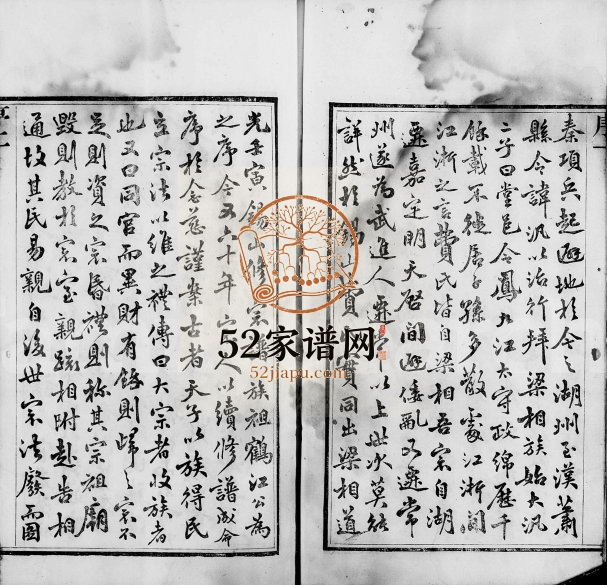 秦項兵起避地於今之湖州至漢蕭
縣令諱汎以治行拜梁相族始大汎
二子曰堂邑令鳳九江太守政綿歷千
餘載不徙居子孫多散處江浙間
江浙之言費氏皆自梁相吾宗自湖
遷嘉定明天啓間避倭亂又遷常
州遂為武進人遷常以上世次莫能
詳然於錫山費實同出梁相道
光壬寅錫山修宗譜族祖鶴江公為
之序今五六十年宗人以續修譜成命
序於念慈謹案古者天子以族得民
立宗法以維之禮傳曰大宗者收族者
也又曰同宮而異財有餘則歸之宗不
足則資之宗昏禮則称其宗祖廟
毀則教於宗室親疏相附赴告相
通故其民易親自後世宗法廢而圖
52家谱网
52jiapu.com